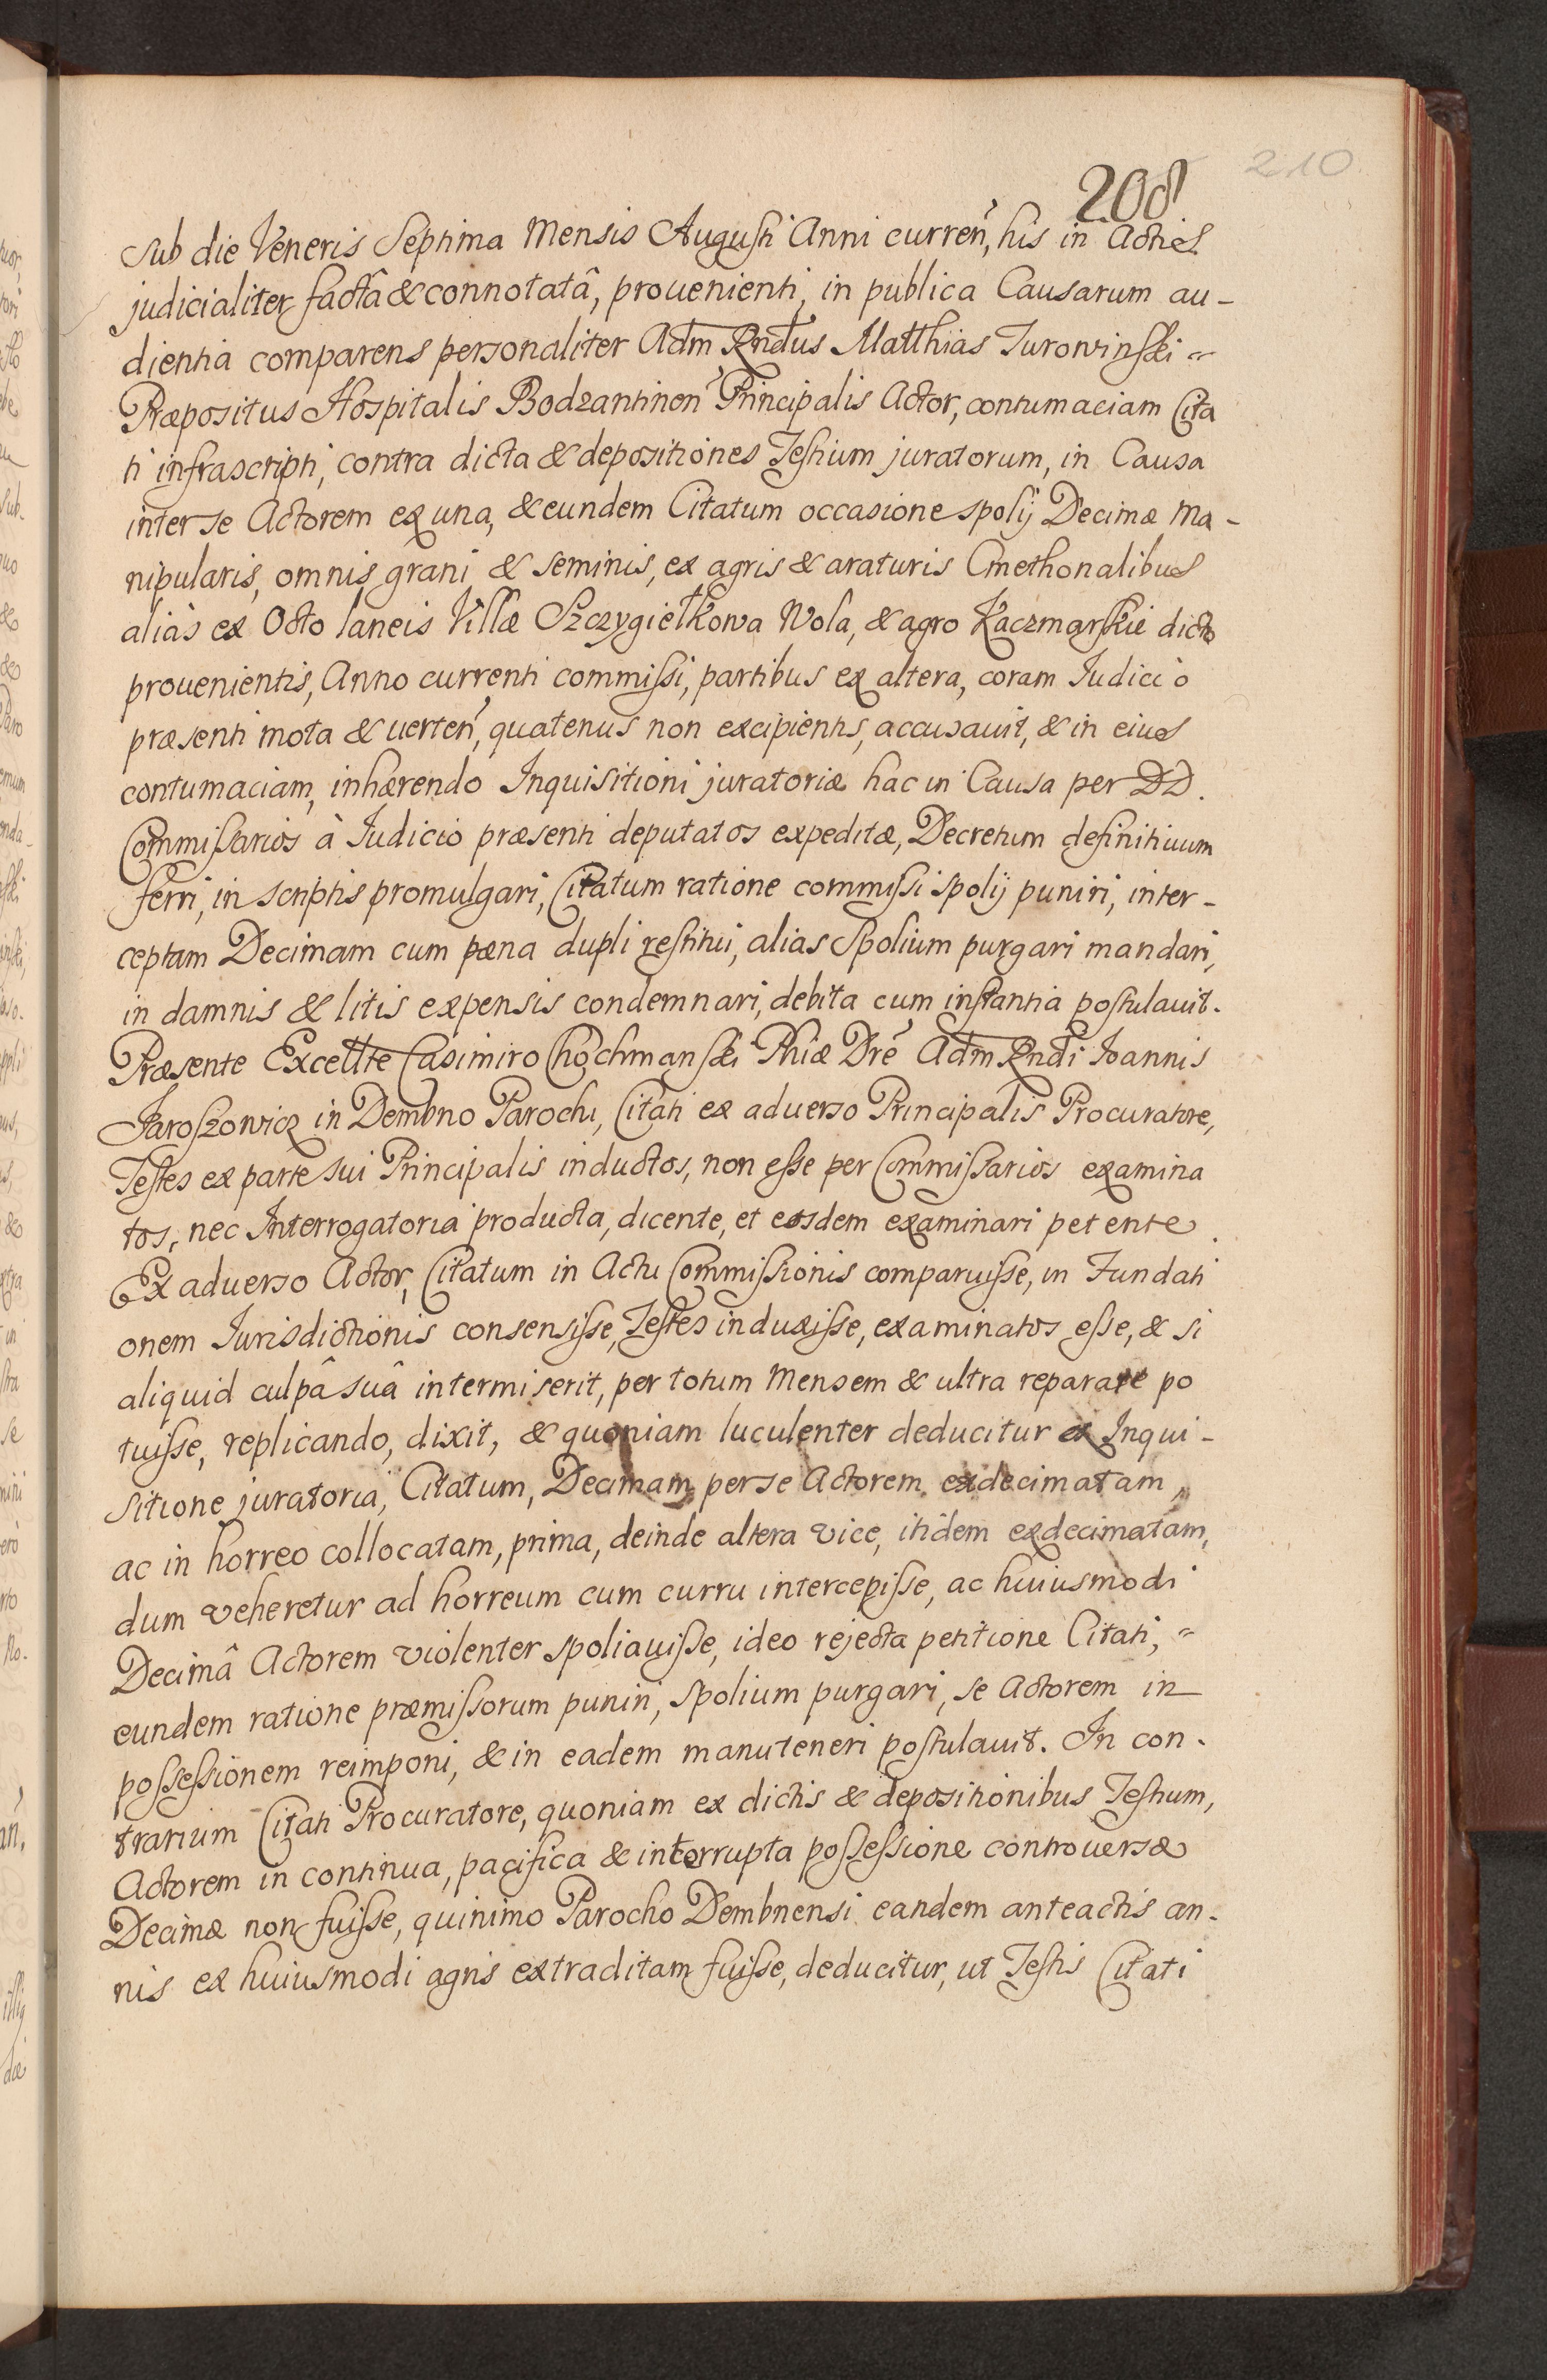 210.
208
sub die Veneris Septima Mensis Augusti Anni curren̄, his in Actis
judicialiter factâ & connotatâ, prouenienti, in publica Causarum au-
dientia comparens personaliter Adm Rndus Matthias Turowinski
Præpositus Hospitalis Bodzantinen̄ Principalis Actor, contumaciam Cita
ti infrascripti, contra dicta & depositiones Testium juratorum, in Causa
inter se Actorem ex una, & eundem Citatum occasione spolij Decimæ Ma-
nipularis, omnis grani & seminis, ex agris & araturis Cmethonalibus
aliàs ex Octo laneis Villæ Szczygiełkowa Wola, & agro Kaczmarskie dicto
prouenientis, Anno currenti commissi, partibus ex altera, coram Iudicio
præsenti mota & uerten̄, quatenus non excipientis, accusauit, & in eius
contumaciam, inhærendo Inquisitioni juratoriæ hac in Causa per DD.
Commissarios à Iudicio præsenti deputatos expeditæ, Decretum definitiuum
ferri, in scriptis promulgari, Citatum ratione commissi spolij puniri, inter-
ceptam Decimam cum pæna dupli restitui, alias Spolium purgari mandari,
in damnis & litis expensis condemnari, debita cum instantia postulauit.
Præsente Excellte Casimiro Chochmanski Phiæ Dre Adm Rndi Ioannis
Jaroszowicz in Dembno Parochi, Citati ex aduerso Principalis Procuratore,
Testes ex parte sui Principalis inductos, non esse per Commissarios examina
tos, nec Interrogatoria producta, dicente, et eosdem examinari petente.
Ex aduerso Actor, Citatum in Actu Commissionis comparuisse, in Fundati
onem Iurisdictionis consensisse, Testes induxisse, examinatos esse, & si
aliquid culpâ suâ intermiserit, per totum Mensem & ultra reparare po
tuisse, replicando, dixit, & quoniam luculenter deducitur ex Inqui-
sitione juratoria, Citatum, Decimam per se Actorem exdecimatam,
ac in horreo collocatam, prima, deinde altera vice, itidem exdecimatam,
dum veheretur ad horreum cum curru intercepisse, ac huiusmodi
Decimâ Actorem violenter spoliauisse, ideo rejecta petitione Citati,
eundem ratione præmissorum puniri, spolium purgari, se Actorem in
possessionem reimponi, & in eadem manuteneri postulauit. In con-
trarium Citati Procuratore, quoniam ex dictis & depositionibus Testium,
Actorem in continua, pacifica & interrupta possessione controuersæ
Decimæ non fuisse, quinimo Parocho Dembnensi eandem anteactis an-
nis ex huiusmodi agris extraditam fuisse, deducitur, ut Testis Citati